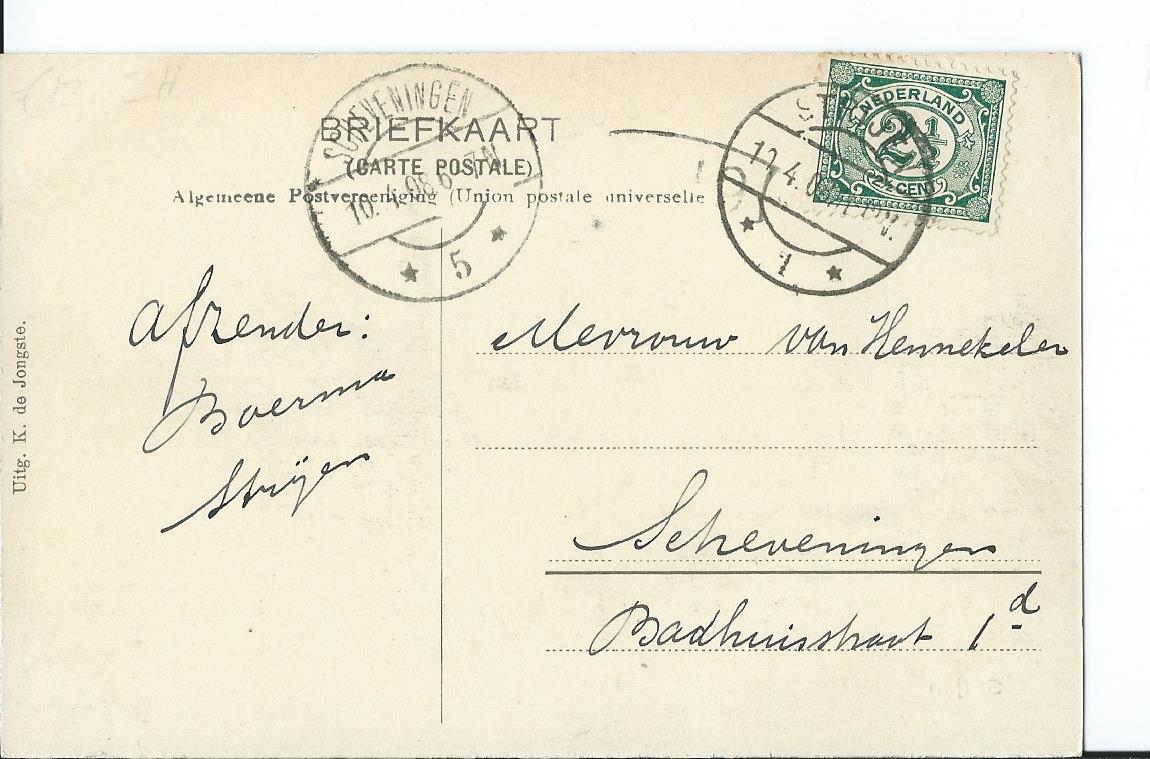 BRIEFKAART
(CARTE POSTALE)
Algemeene Postvereeniging (Union postale universelle
SCHEVENINGEN
10.4.08 6-7N
5
NEDERLAND
2½
2½ CENT
STRIJEN
10.4.08
1
Afzender:
Boerma
Strijen
Mevrouw van Hennekeler
Scheveningen
Badhuisstraat 1d
Uitg. K. de Jongste.